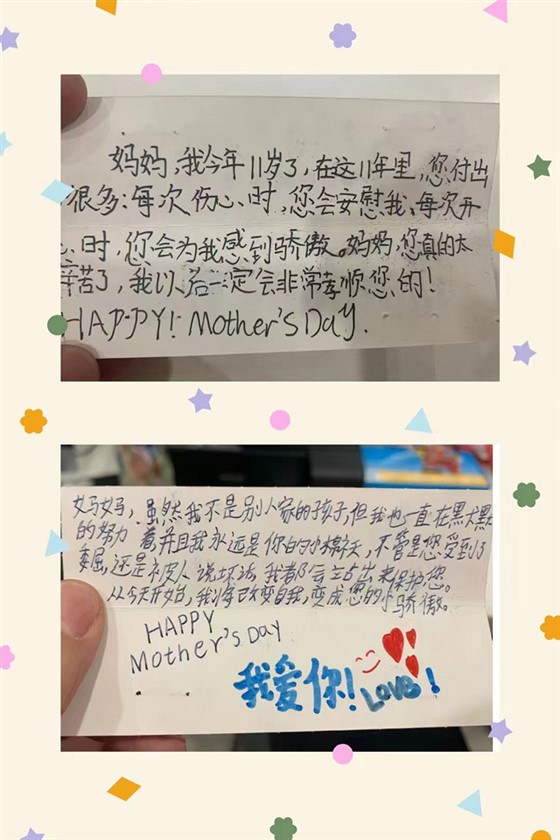 妈妈，我今年11岁了，在这11年里，您付出
很多：每次伤心时，您会安慰我、每次开
心时，您会为我感到骄傲。妈妈，您真的太
辛苦了，我以后一定会非常孝顺您的！
HAPPY! Mother's Day.
妈妈，虽然我不是别人家的孩子，但我也一直在默默
的努力着，并且我永远是你的小棉袄，不管是您受到了
委屈，还是被人说坏话，我都会站出来保护您。
从今天开始，我将改变自我，变成您的小骄傲。
HAPPY
Mother's Day
我爱你！Love！